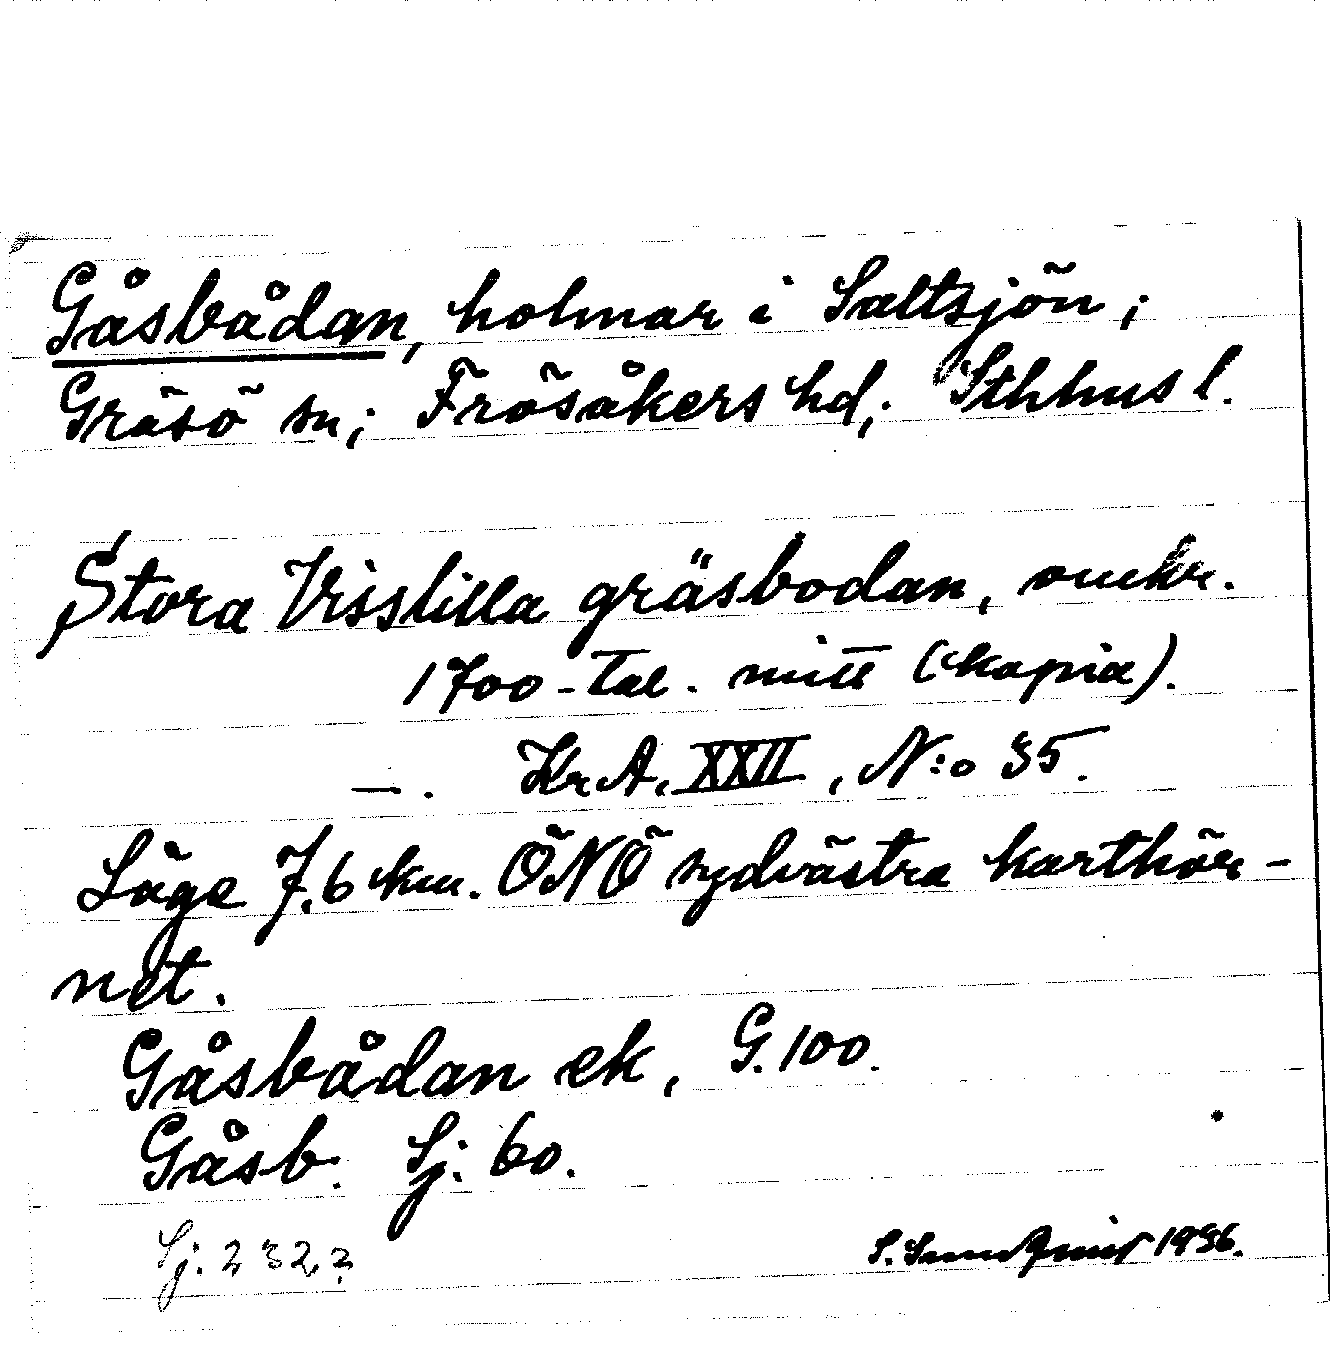 Gåsbådan, holmar i Saltsjön;
Gräsö sn; Frösåkers hd; Sthhus l.
Stora Visslilla gräsbodan, omkr.
1700-tal. mitt (kopia).
—. Kr A. XXII, N:o 35.
Läge 7.6 km. ÖNÖ sydvästra karthör-
net.
Gåsbådan ek, G. 100.
Gåsb. Sj. 60.
Sj. 232,2
S. Sundqvist 1936.